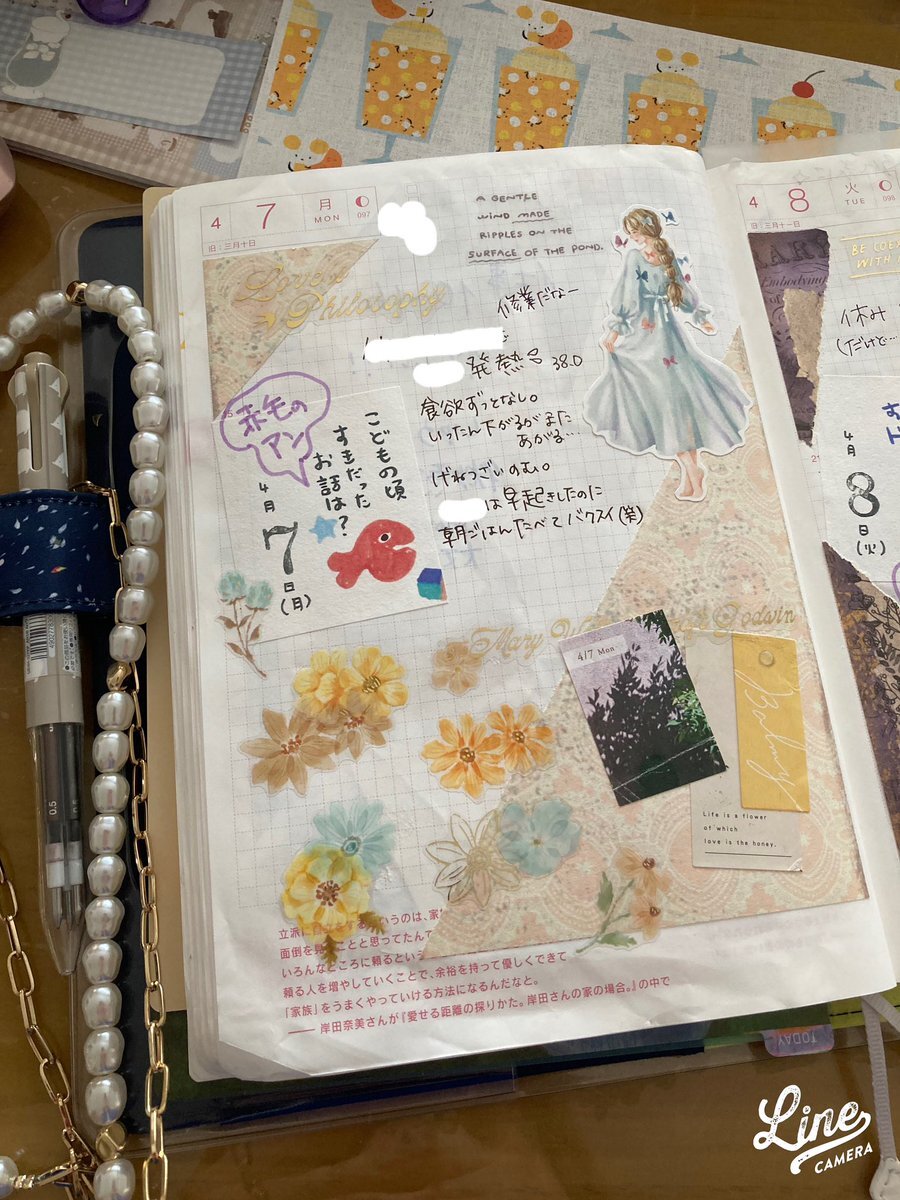 4 7 月 MON 097
旧:三月十日
A GENTLE
WIND MADE
RIPPLES ON THE
SURFACE OF THE POND.
Love's
Philosophy
修業だなー
発熱 38.0
食欲ずっとなし。
いったん下がるがまた
あがる…
げねつざいのむ。
は早起きしたのに
朝ごはんたべてバクスイ(笑)
赤毛の
アン
こどもの頃
すきだった
お話は?
4月7日(月)
Mary
Godwin
4/7 Mon
Life is a flower
of which
love is the honey.
立派に
いうのは、家
面倒を見
ことと思ってたんで
いろんなところに頼るという
頼る人を増やしていくことで、余裕を持って優しくできて
「家族」をうまくやっていける方法になるんだなと。
―― 岸田奈美さんが『愛せる距離の探りかた。岸田さんの家の場合。』の中で
4 8 火 TUE 098
旧:三月十一日
BE COEX
WITH
Embodying
休み
(だけど…
4月8日(火)
TODAY
0.5
Line
CAMERA